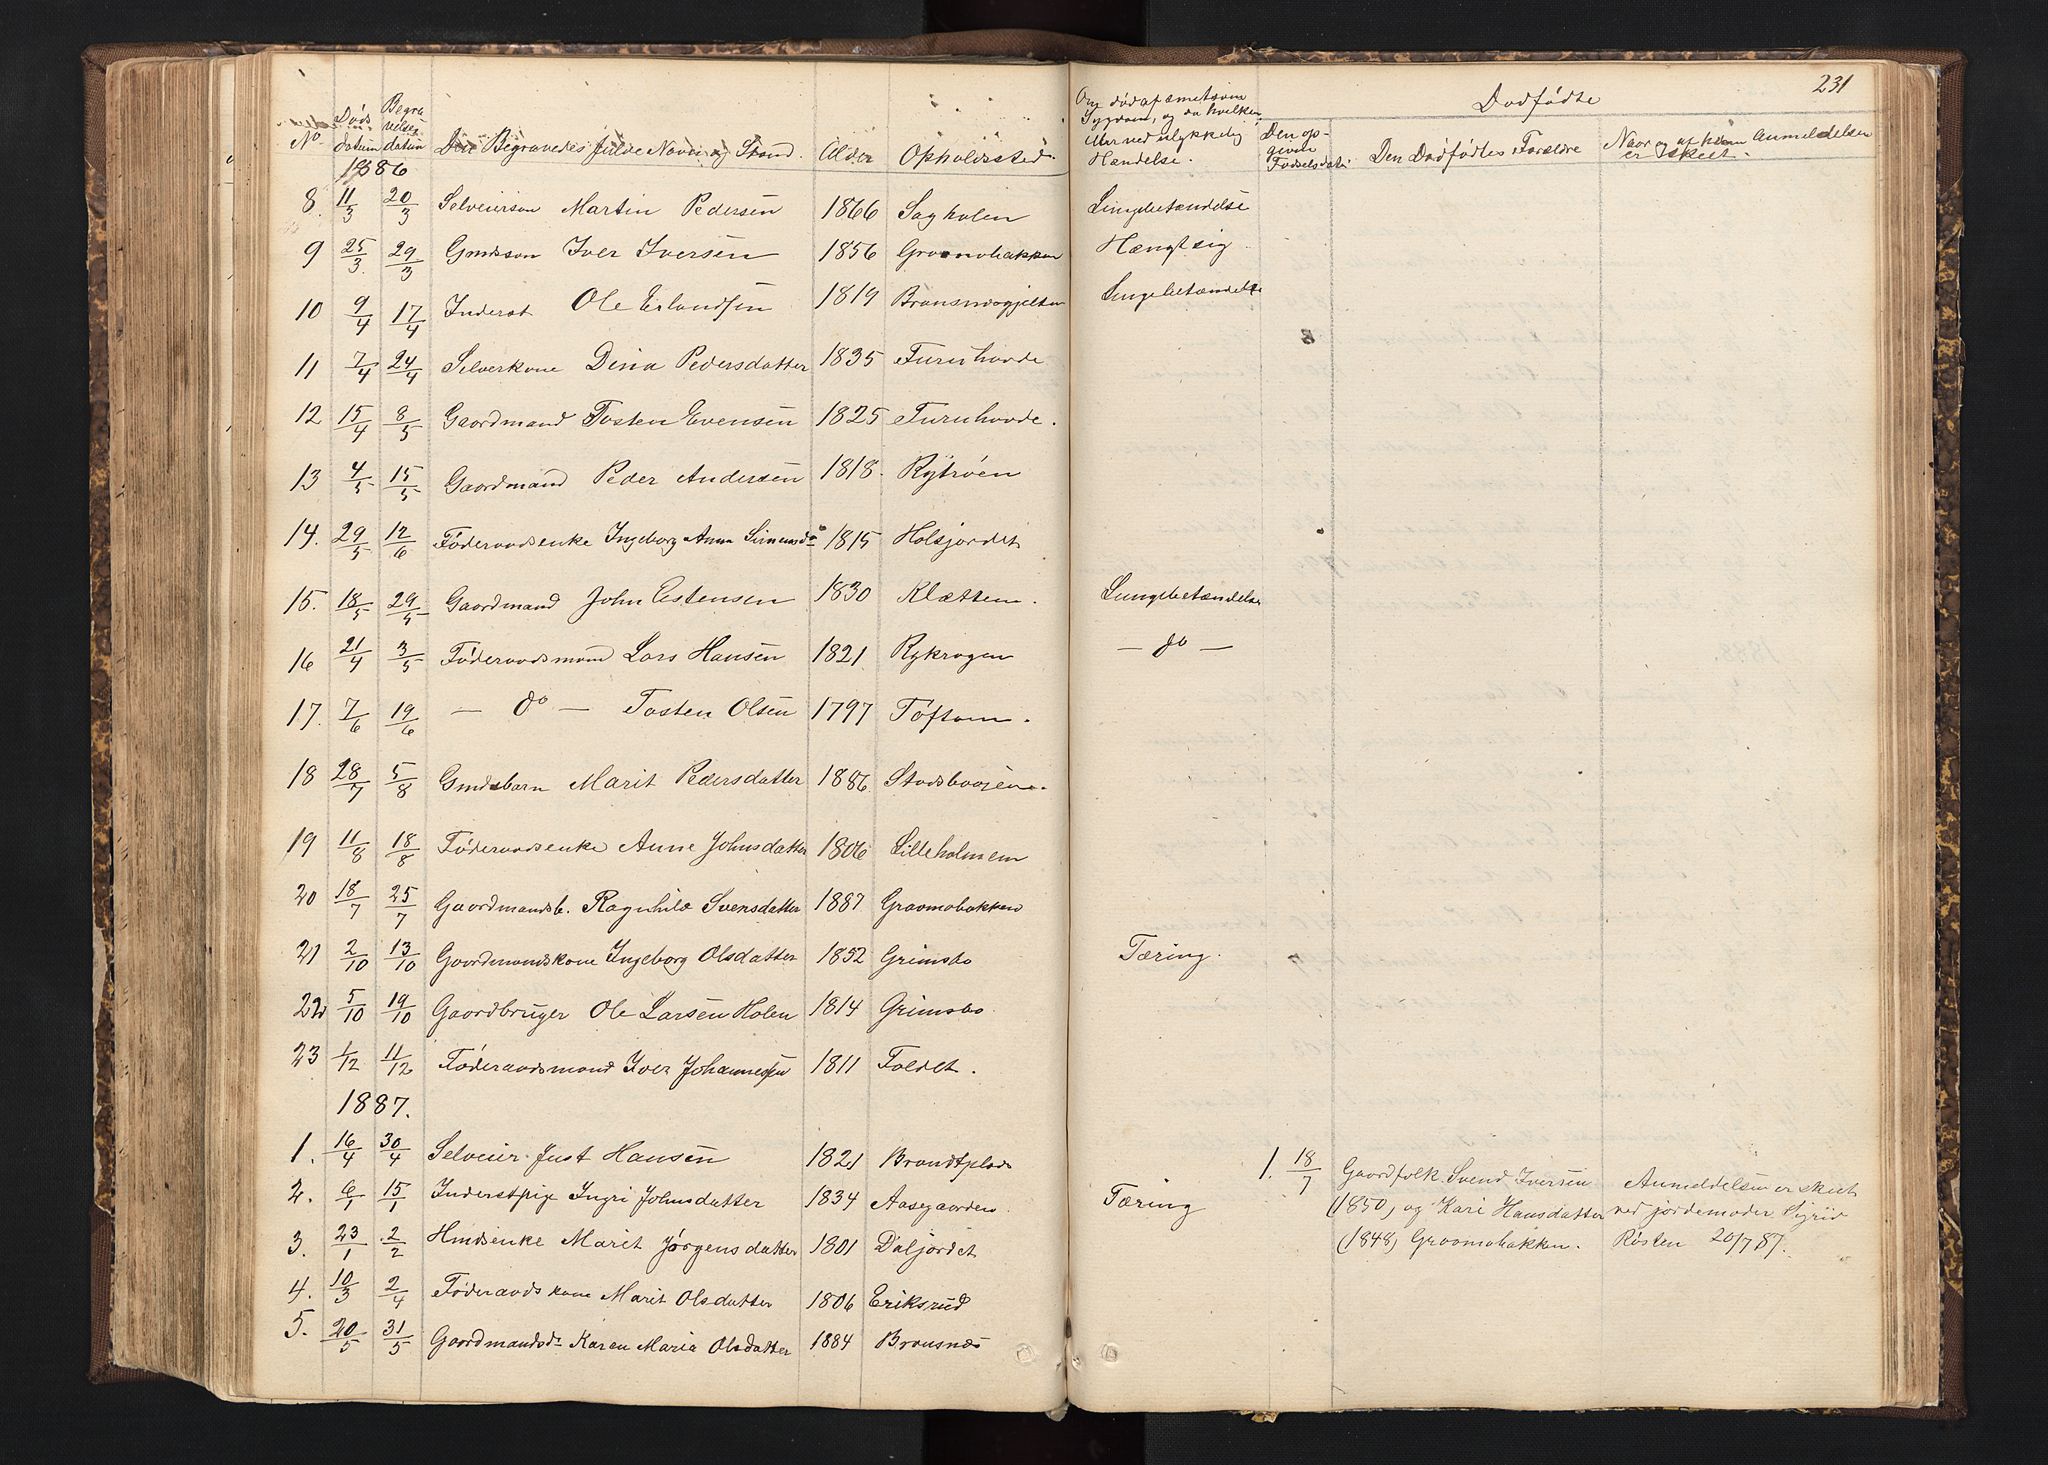 231
No Døds datum Begravelses datum Den Begravedes fulde Navn og Stand. Alder Opholdssted. Om død af smitsom Sygdom, og da hvilken, eller ved ulykkelig Hændelse. Dødfødte
Den opgivne Fødselsdat. Den Dødfødtes Forældre Naar og af hvem Anmeldelsen er skeet.
1886
8. 11/3 20/3 Selveiersøn Martin Pedersen 1866 Sagholen Lungebetændelse
9 25/3 29/3 Gmdssøn Iver Iversen 1856 Graamobakken Hængt sig.
10 9/4 17/4 Inderst Ole Erlandsen 1819 Lungebetændelse
11 7/4 24/4 Selveierkone Dina Pedersdatter 1835 Furuhovde
12 15/4 8/5 Gaardmand Tosten Evensen 1825 Furuhovde.
13 4/5 15/5 Gaardmand Peder Andersen 1818. Rytrøen
14. 29/5 12/6 Føderaadsenke Ingeborg Anna Simensdr 1815 Holsjordet
15. 18/5 29/5 Gaardmand John Estensen 1830 Klætten. Lungebetændelse
16 21/4 3/5 Føderaadsmand Lars Hansen 1821. Rykrogen — do —
17. 7/6 19/6 — do — Tosten Olsen 1797 Toftom.
18 28/7 5/8 Gmdsbarn Marit Pedersdatter 1886
19 11/8 18/8 Føderaadsenke Anne Johnsdatter 1806 Lilleholmen
20 18/7 25/7 Gaardmandsb. Ragnhild Svensdatter 1887 Graamobakken
21 2/10 13/10 Gaardmandskone Ingeborg Olsdatter 1852 Grimsbo Tæring.
22 5/10 19/10 Gaardbruger Ole Larsen Holen 1814 Grimsbo.
23 1/12 11/12 Føderaadsmand Iver Johannesen 1811 Foldet.
1887.
1. 16/4 30/4 Selveier Just Hansen 1821 Brandtplads
1. 18/7 Gaardfolk Svend Iversen Anmeldelsen er skeet
2. 6/1 15/1 Inderstpige Ingri Johnsdatter 1834 Aasegaarden Tæring
(1850) og Kari Hansdatter ved jordemoder Sigrid
3. 23/1 2/2 Hmdsenke Marit Jørgensdatter 1801 Daljordet
(1848) Graamobakken. Røsten 20/7 87.
4. 10/3 2/4 Føderaadskone Marit Olsdatter 1806 Eriksrud
5. 20/5 31/5 Gaardmandsdr Karen Maria Olsdatter 1884 Brænsnæs